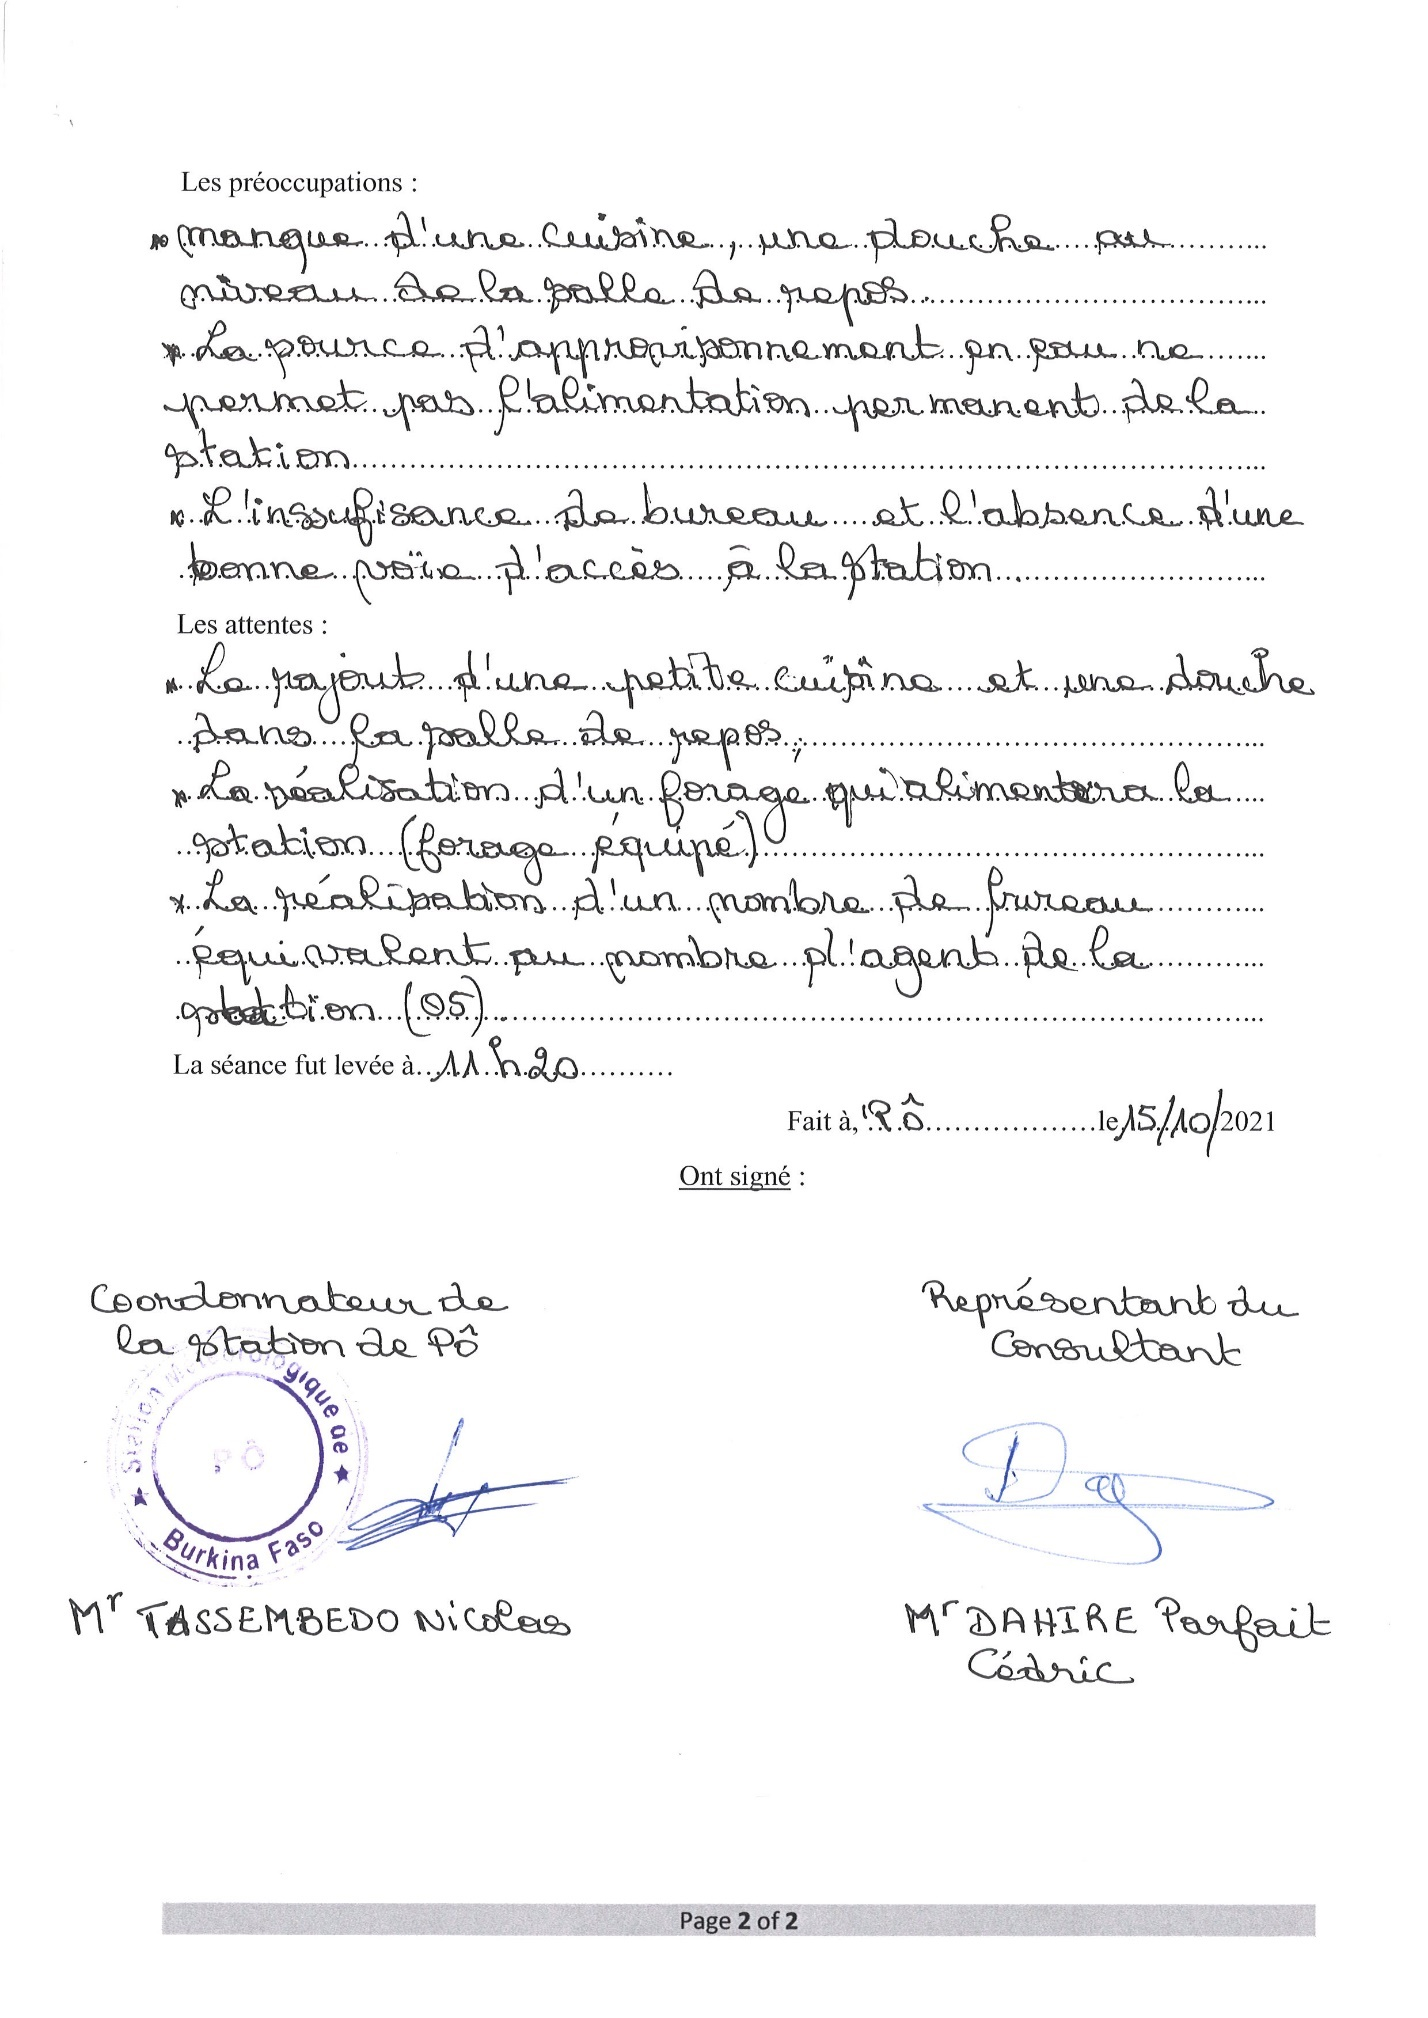 Les préoccupations :
* manque d'une cuisine, une douche au
niveau de la salle de repos.
* La source d'approvisonnement en eau ne
permet pas l'alimentation permanent de la
station
* L'inssufisance de bureau et l'absence d'une
bonne voïe d'accès à la station
Les attentes :
* Le rajout d'une petite cuisine et une douche
dans la salle de repos,
* La réalisation d'un forage qui alimentera la
station (forage équipé)
* La réalisation d'un nombre de bureau
équivalent au nombre d'agent de la
station (05).
La séance fut levée à 11h20
Fait à, Pô le 15/10/2021
Ont signé :
Coordonnateur de
la station de Pô
Représentant du
Consultant
Station Météorologique de
PÔ
★ ★
Burkina Faso
Mr TASSEMBEDO Nicolas
Mr DAHIRE Parfait
Cédric
Page 2 of 2